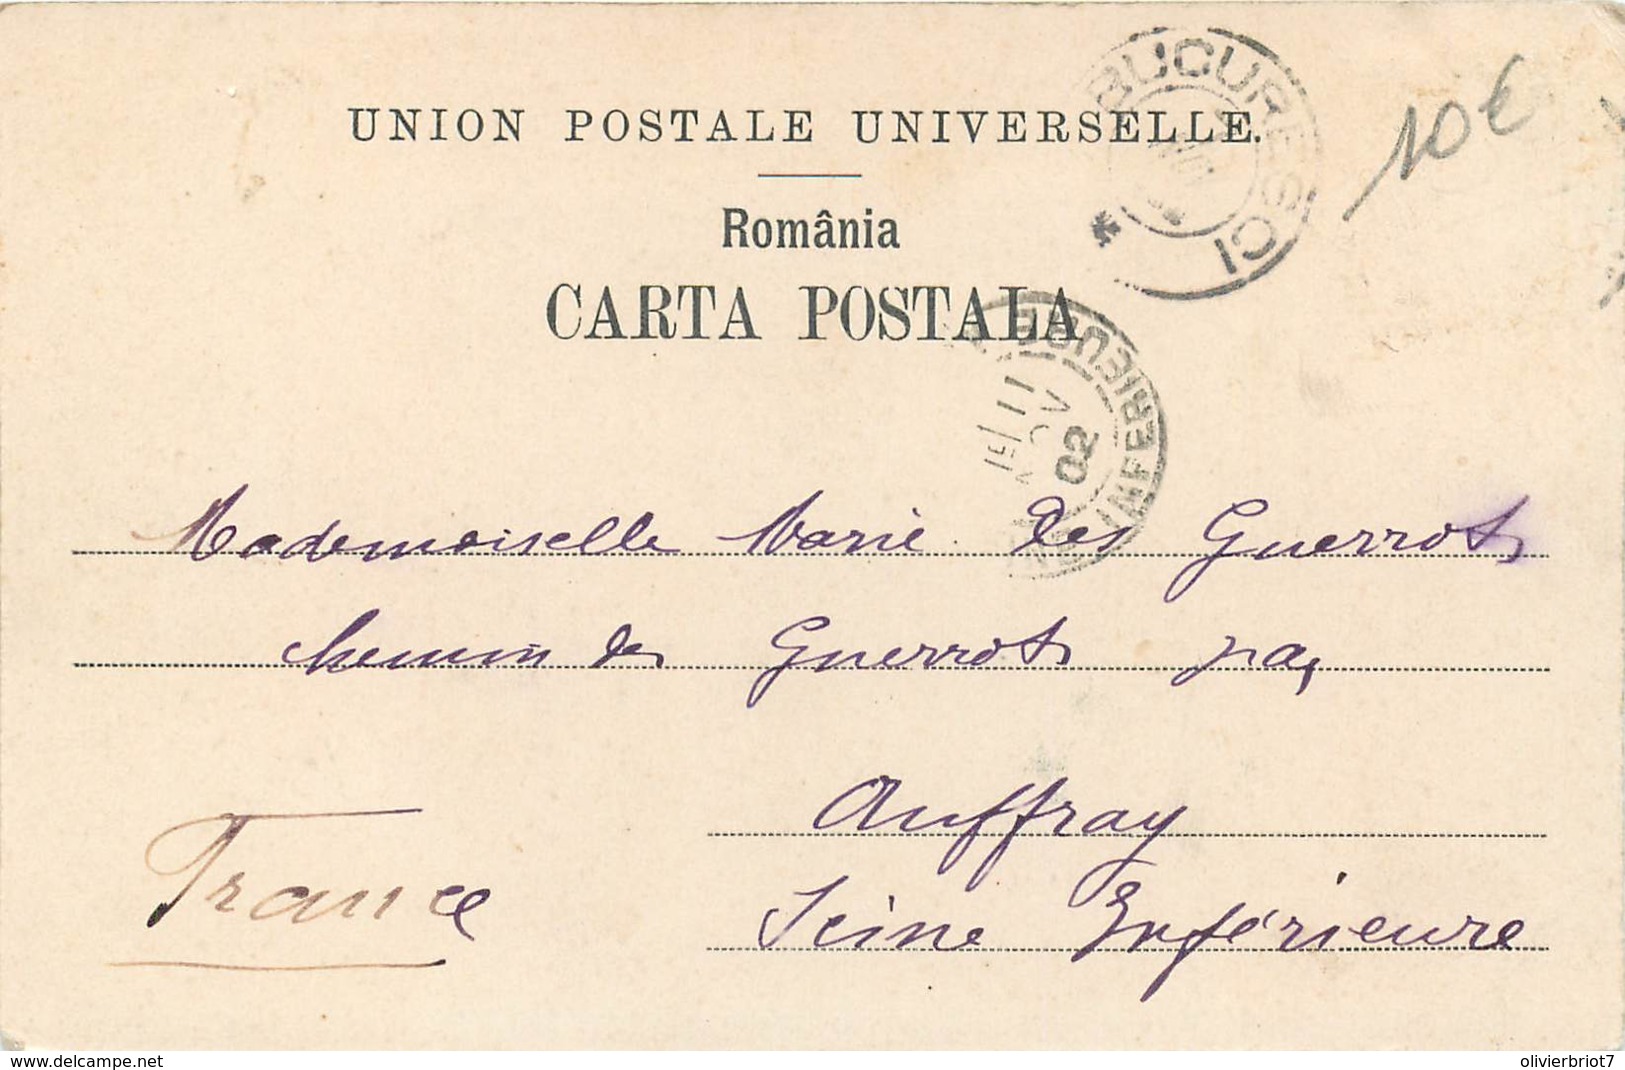 UNION POSTALE UNIVERSELLE.
România
CARTA POSTALA
BUCURESCI
10€
INFERIEURE
11
02
Mademoiselle Marie des Guerrots
chemin des Guerrots par
Auffray
Seine Inférieure
France
www.delcampe.net
olivierbriot7